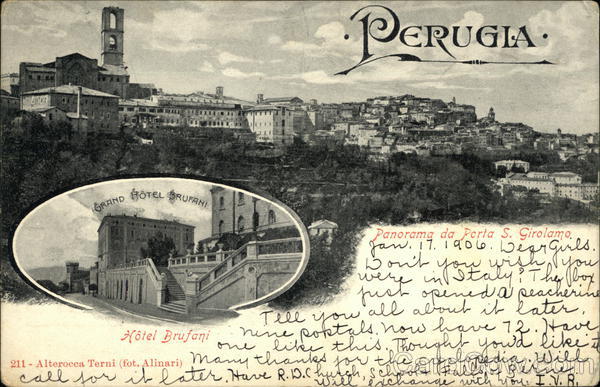 PERUGIA
GRAND HÔTEL BRUFANI
Panorama da Porta S. Girolamo
Jan. 17. 1906. Dear Girls.
Don't you wish you
were in Italy? The boy
just opened a peacherine
Tell you all about it later.
nine postals. now have 72. Have
one like this. Thought you'd like it
Many thanks for th pedia. Will
call for it later. Have R.D. Church, S
will exchange with you I.V.R.
Hôtel Brufani
211 - Alterocca Terni (fot. Alinari)
CardCow.com